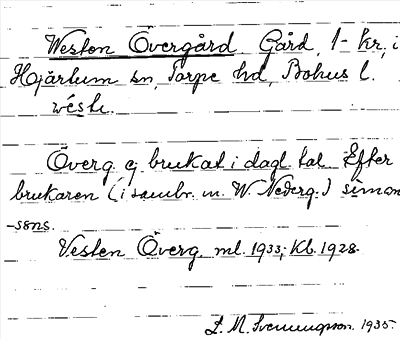 Westen Övergård Gård, 1- kr, i
Hjärtum sn, Torpe hd, Bohus l.
wéste.
Överg. ej brukat i dagl. tal. Efter
brukaren (i sambr. m. W. Nederg.) simon
-sens.
Vesten Överg. ml. 1933; Kb. 1928.
L. M. Svenungsson. 1935.